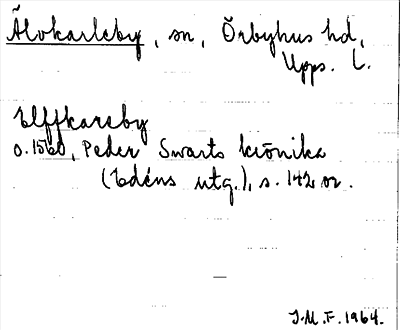 Älvkarleby, sn, Örbyhus hd,
Upps. L.
Elffkareby
o. 1560, Peder Swarts krönika
(Edéns utg.), s. 142 or.
J.M.F. 1964.